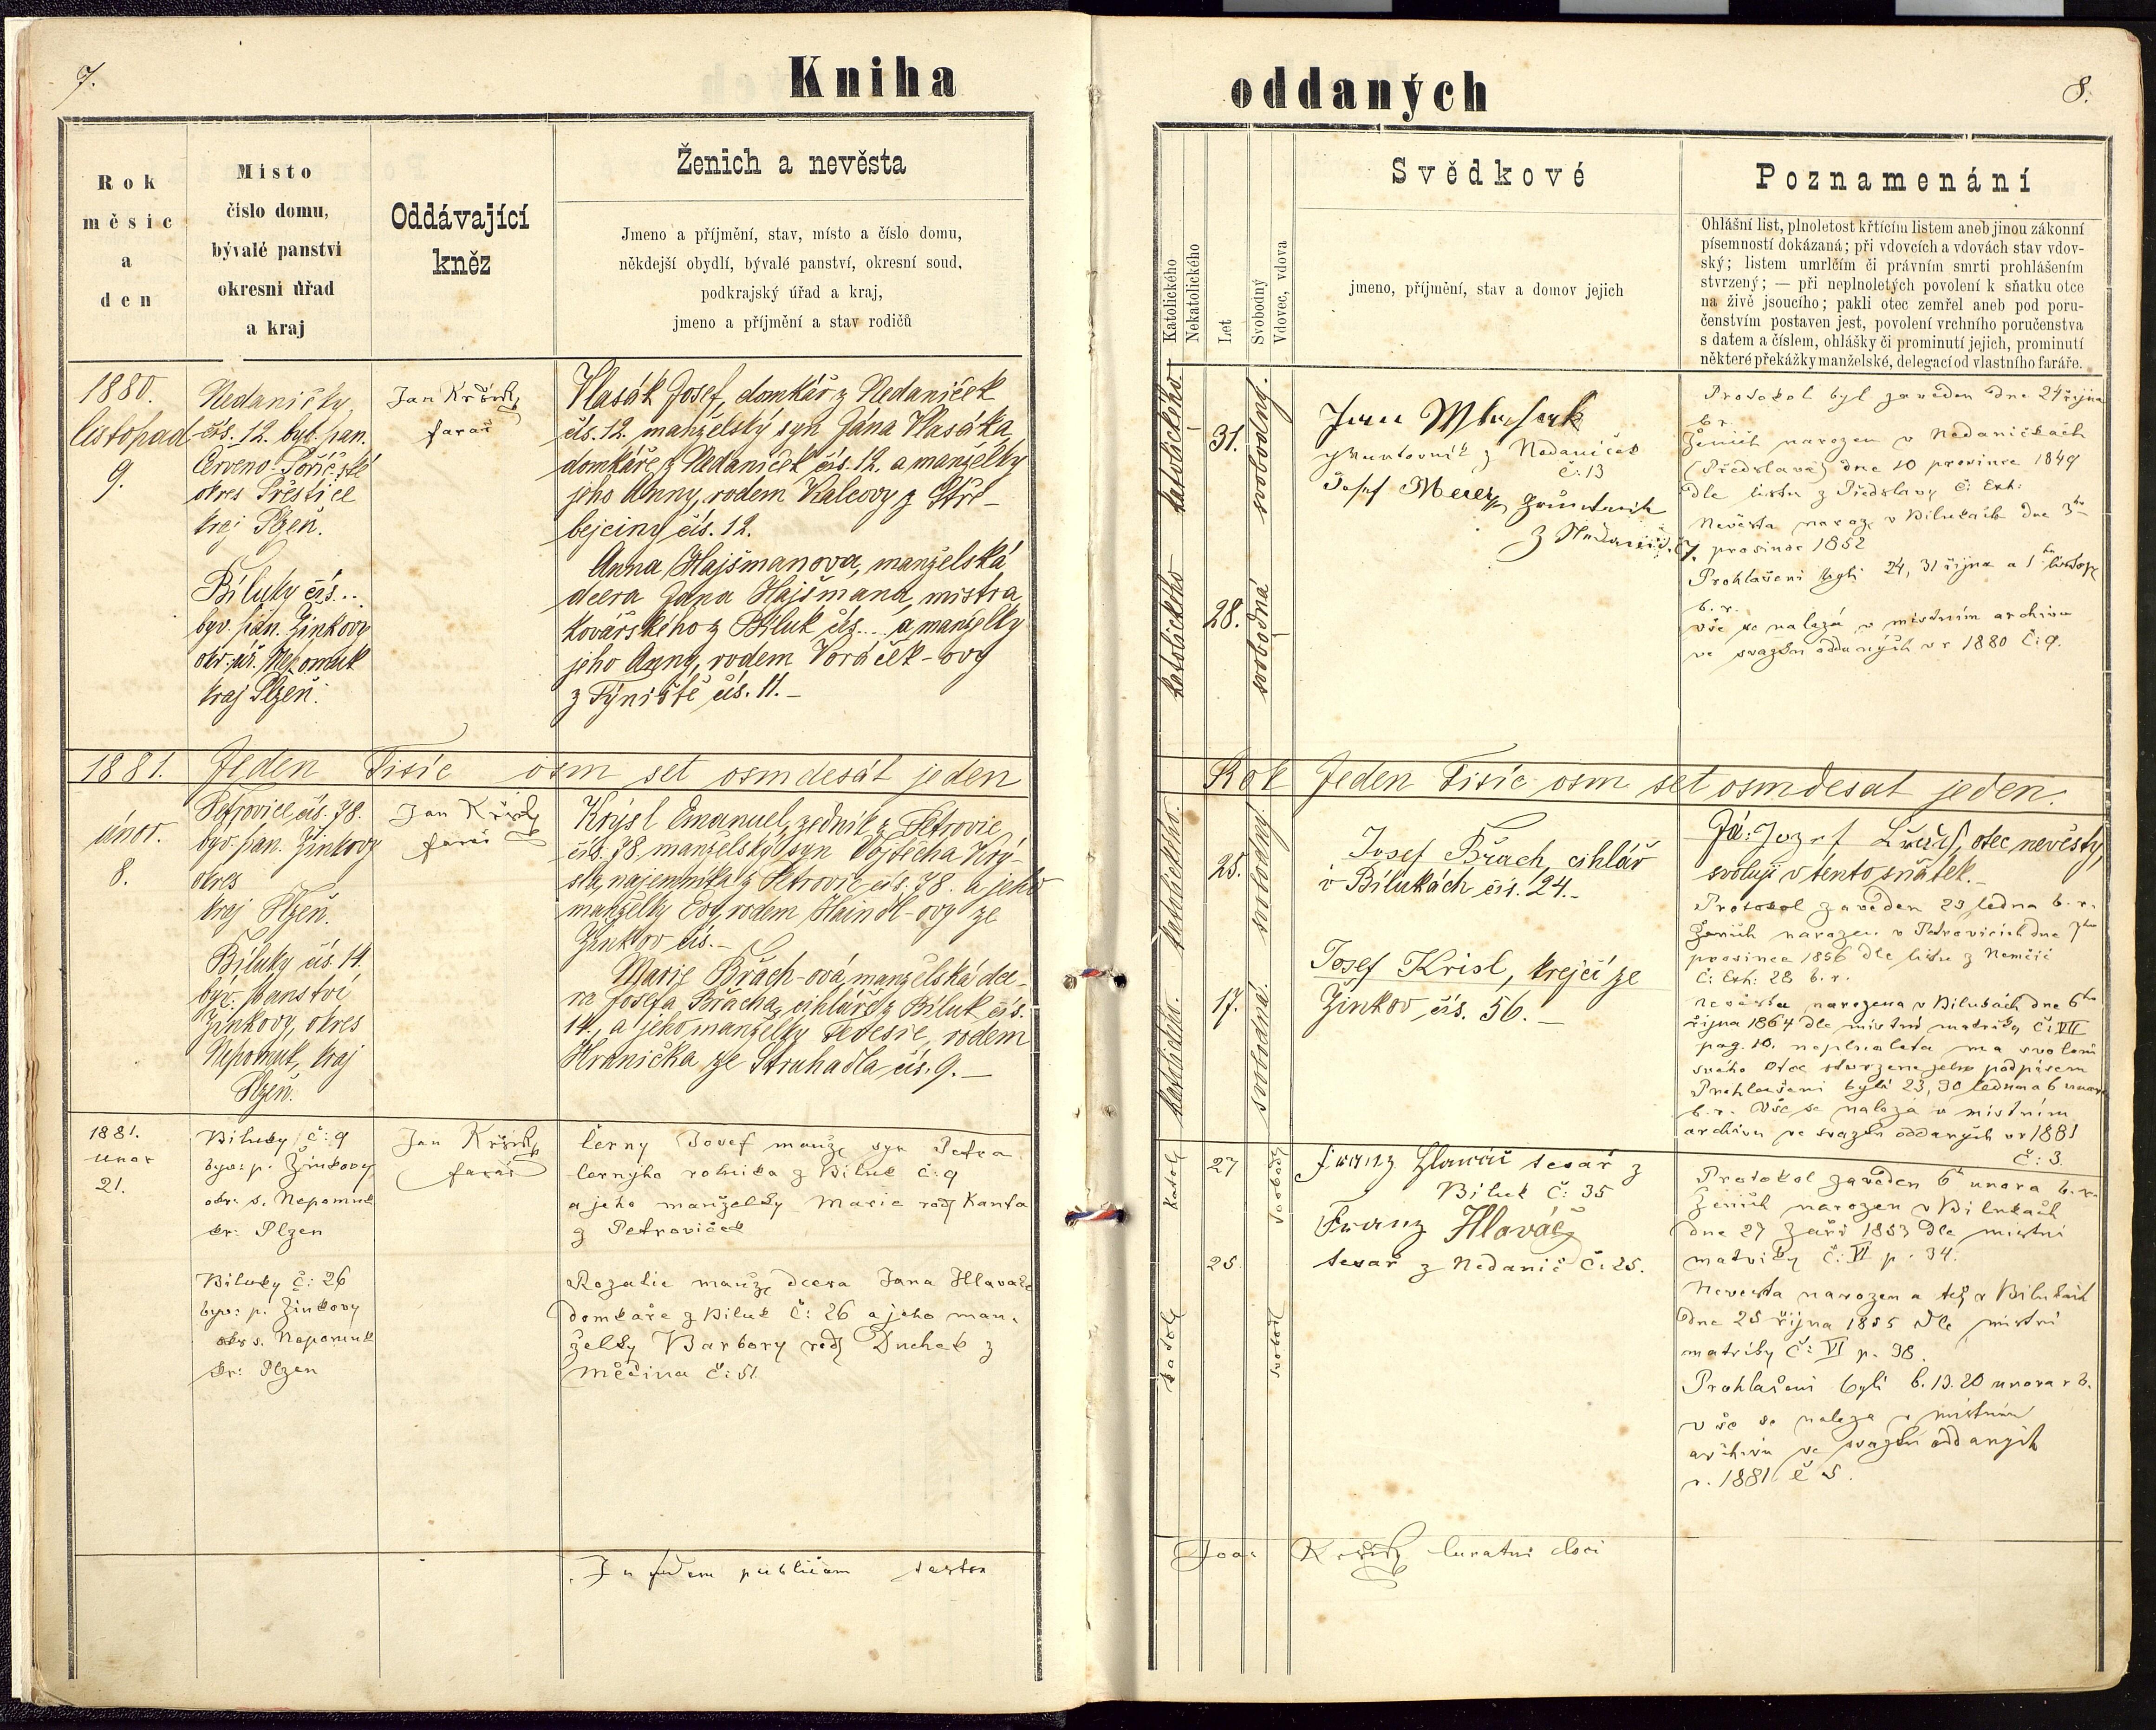 7.
Kniha
Rok
měsíc
a
den
Místo
číslo domu,
bývalé panství
okresní úřad
a kraj
Oddávající
kněz
Ženich a nevěsta
Jmeno a příjmění, stav, místo a číslo domu,
někdejší obydlí, bývalé panství, okresní soud,
podkrajský úřad a kraj,
jmeno a příjmění a stav rodičů
1880.
listopad
9.
Nedaničky
čís. 12. býv. pan.
Červeno-Poříč-ské
okres Přeštice
kraj Plzeň.
Bíluky čís..
býv. pan. Žinkovy
okr. úř. Nepomuk
kraj Plzeň.
Jan
farář
Vlasák Josef, domkář z Nedaniček
čís. 12. manželský syn Jána Vlasáka
domkáře z Nedaniček čís. 12. a manželky
jeho Anny, rodem Kalcovy z Stře-
bejciny čís. 12.
Anna Hajšmanova, manželská
dcera Jana Hajšmana, mistra
kovářského z Biluk čís... a manželky
jeho Anny, rodem Voráček-ovy
z Týniště čís. 11. –
1881. Jeden Tisíc osm set osmdesát jeden
únor.
8.
Petrovice čís. 78.
býv. pan. Žinkovy
okres
kraj Plzeň.
Bíluky čís 14.
býv. panství
Žinkovy, okres
Nepomuk, kraj
Plzeň.
Jan
farář
Krýsl Emanuel, zedník z Petrovic
čís. 78. manželský syn Vojtěcha Krý-
sla, najemníka z Petrovic čís. 78. a jeho
manželky Evy, rodem Haindl-ovy ze
Žinkov čís. –
Marie Břach-ová, manželská dce-
ra Josefa Břacha, cihláře z Biluk čís.
14., a jeho manželky Teresie, rodem
Hranička ze Struhadla čís. 9. –
1881.
unor
21.
Biluky č: 9
byv: p. Žinkovy
okr: s. Nepomuk
kr: Plzen
Biluky č: 26
byv: p. Žinkovy
okr s. Nepomuk
kr: Plzen
Jan
farář
Černy Josef manž syn Petra
Černyho rolnika z Biluk č: 9
a jeho manželky Marie rod Kanta
z Petroviček
Rozalie manž dcera Jana Hlavače
domkáře z Biluk č: 26 a jeho man-
želky Barbory rod Duchek z
Měčina č: 51
In fidem publicam testor
8.
oddaných
Katolického
Nekatolického
Let
Svobodný
Vdovec, vdova
Svědkové
jmeno, příjmění, stav a domov jejich
Poznamenání
Ohlášní list, plnoletost křticím listem aneb jinou zákonní
písemností dokázaná; při vdovcích a vdovách stav vdov-
ský; listem umrlčím či právním smrti prohlášením
stvrzený; — při neplnoletých povolení k sňatku otce
na živě jsoucího; pakli otec zemřel aneb pod poru-
čenstvím postaven jest, povolení vrchního poručenstva
s datem a číslem, ohlášky či prominutí jejich, prominutí
některé překážky manželské, delegací od vlastního faráře.
katolického.
31.
svobodný.
katolického
28.
svobodná
Jan Wlasak
z Nedaniček
č: 13
Josef
Protokol byl zaveden dne 24 října
b r.
Ženich narozen v Nedaničkách
(Předslavě) dne 10 prosince 1849
dle listu z Předslavy č: Exh:
Nevěsta naroz v Bilukach dne 3ho
prosince 1852
Prohlášeni byli 24, 31 října a 1 listop
b. r.
vše se nalezá v mistním archivu
ve svazku oddaných v r 1880 č: 9.
Rok Jeden Tisíc osm set osmdesat jeden.
katolického.
25.
svobodný.
katolického.
17.
svobodná.
Josef Břach, cihlář
v Bilukách čís. 24. –
Josef Krisl, krejčí ze
Žinkov čís. 56. –
Já: Jozef otec nevěsty,
svoluji v tento sňatek. –
Protokol zaveden 23 ledna b. r.
Ženich narozen v Petrovicích dne 7ho
prosince 1856 dle listu z Němčic
č: Exh: 28 b. r.
Nevěsta narozena v Bilukách dne 6ho
října 1864 dle mistní matriky č: VII
pag. 10. neplnoleta ma svoleni
svého otce stvrzene jeho podpisem
Prohlašeni byli 23, 30 ledna a 6 unora
b. r. Vše se naleza v mistním
archivu ve svazku oddaných v r 1881
č: 3.
katol
27
svobod
katol
25
svobod
Franz Hlawač tesař z
Biluk č: 35
Franz Hlaváč
tesař z Nedanič č: 25.
Protokol zaveden 6 unora b. r.
Ženich narozen v Bilukach
dne 27 Zaři 1853 dle mistni
matriky č: VI p. 34.
Nevesta narozena též v Bilukách
dne 25 října 1855 dle mistní
matriky č: VI p. 38.
Prohlašeni byli 6. 13. 20 unora r b.
vše se naleza v mistním
archivu ve svazku oddaných
r. 1881 č 5.
Joa: curatus loci